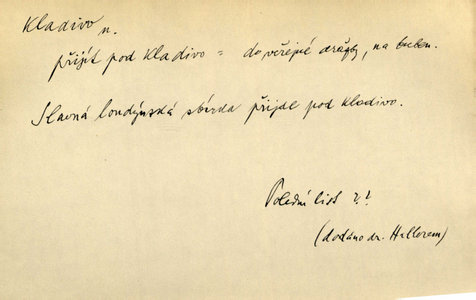 Kladivo n.
přijít pod kladivo = do veřejné dražby, na buben.
Slavná londýnská sbírka přijde pod kladivo.
Polední list ??
(dodáno dr. Hallerem)